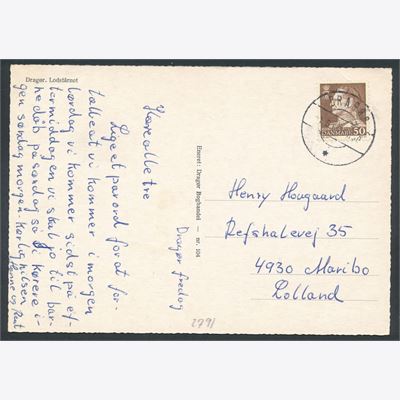 Dragør. Lodstårnet
Dragør fredag
Kære alle tre
Lige et par ord for at for-
tælle at vi kommer i morgen
lørdag vi kommer sidst på ef-
termiddagen vi skal jo til bar-
nedåb på søndag så vi kører i-
gen søndag morgen. kærlig hilsen
Hanne og
Eneret: Dragør Boghandel — nr. 104
DRAGØR
DANMARK 50
Henry Hougaard
Refshalevej 35
4930 Maribo
Lolland
2791